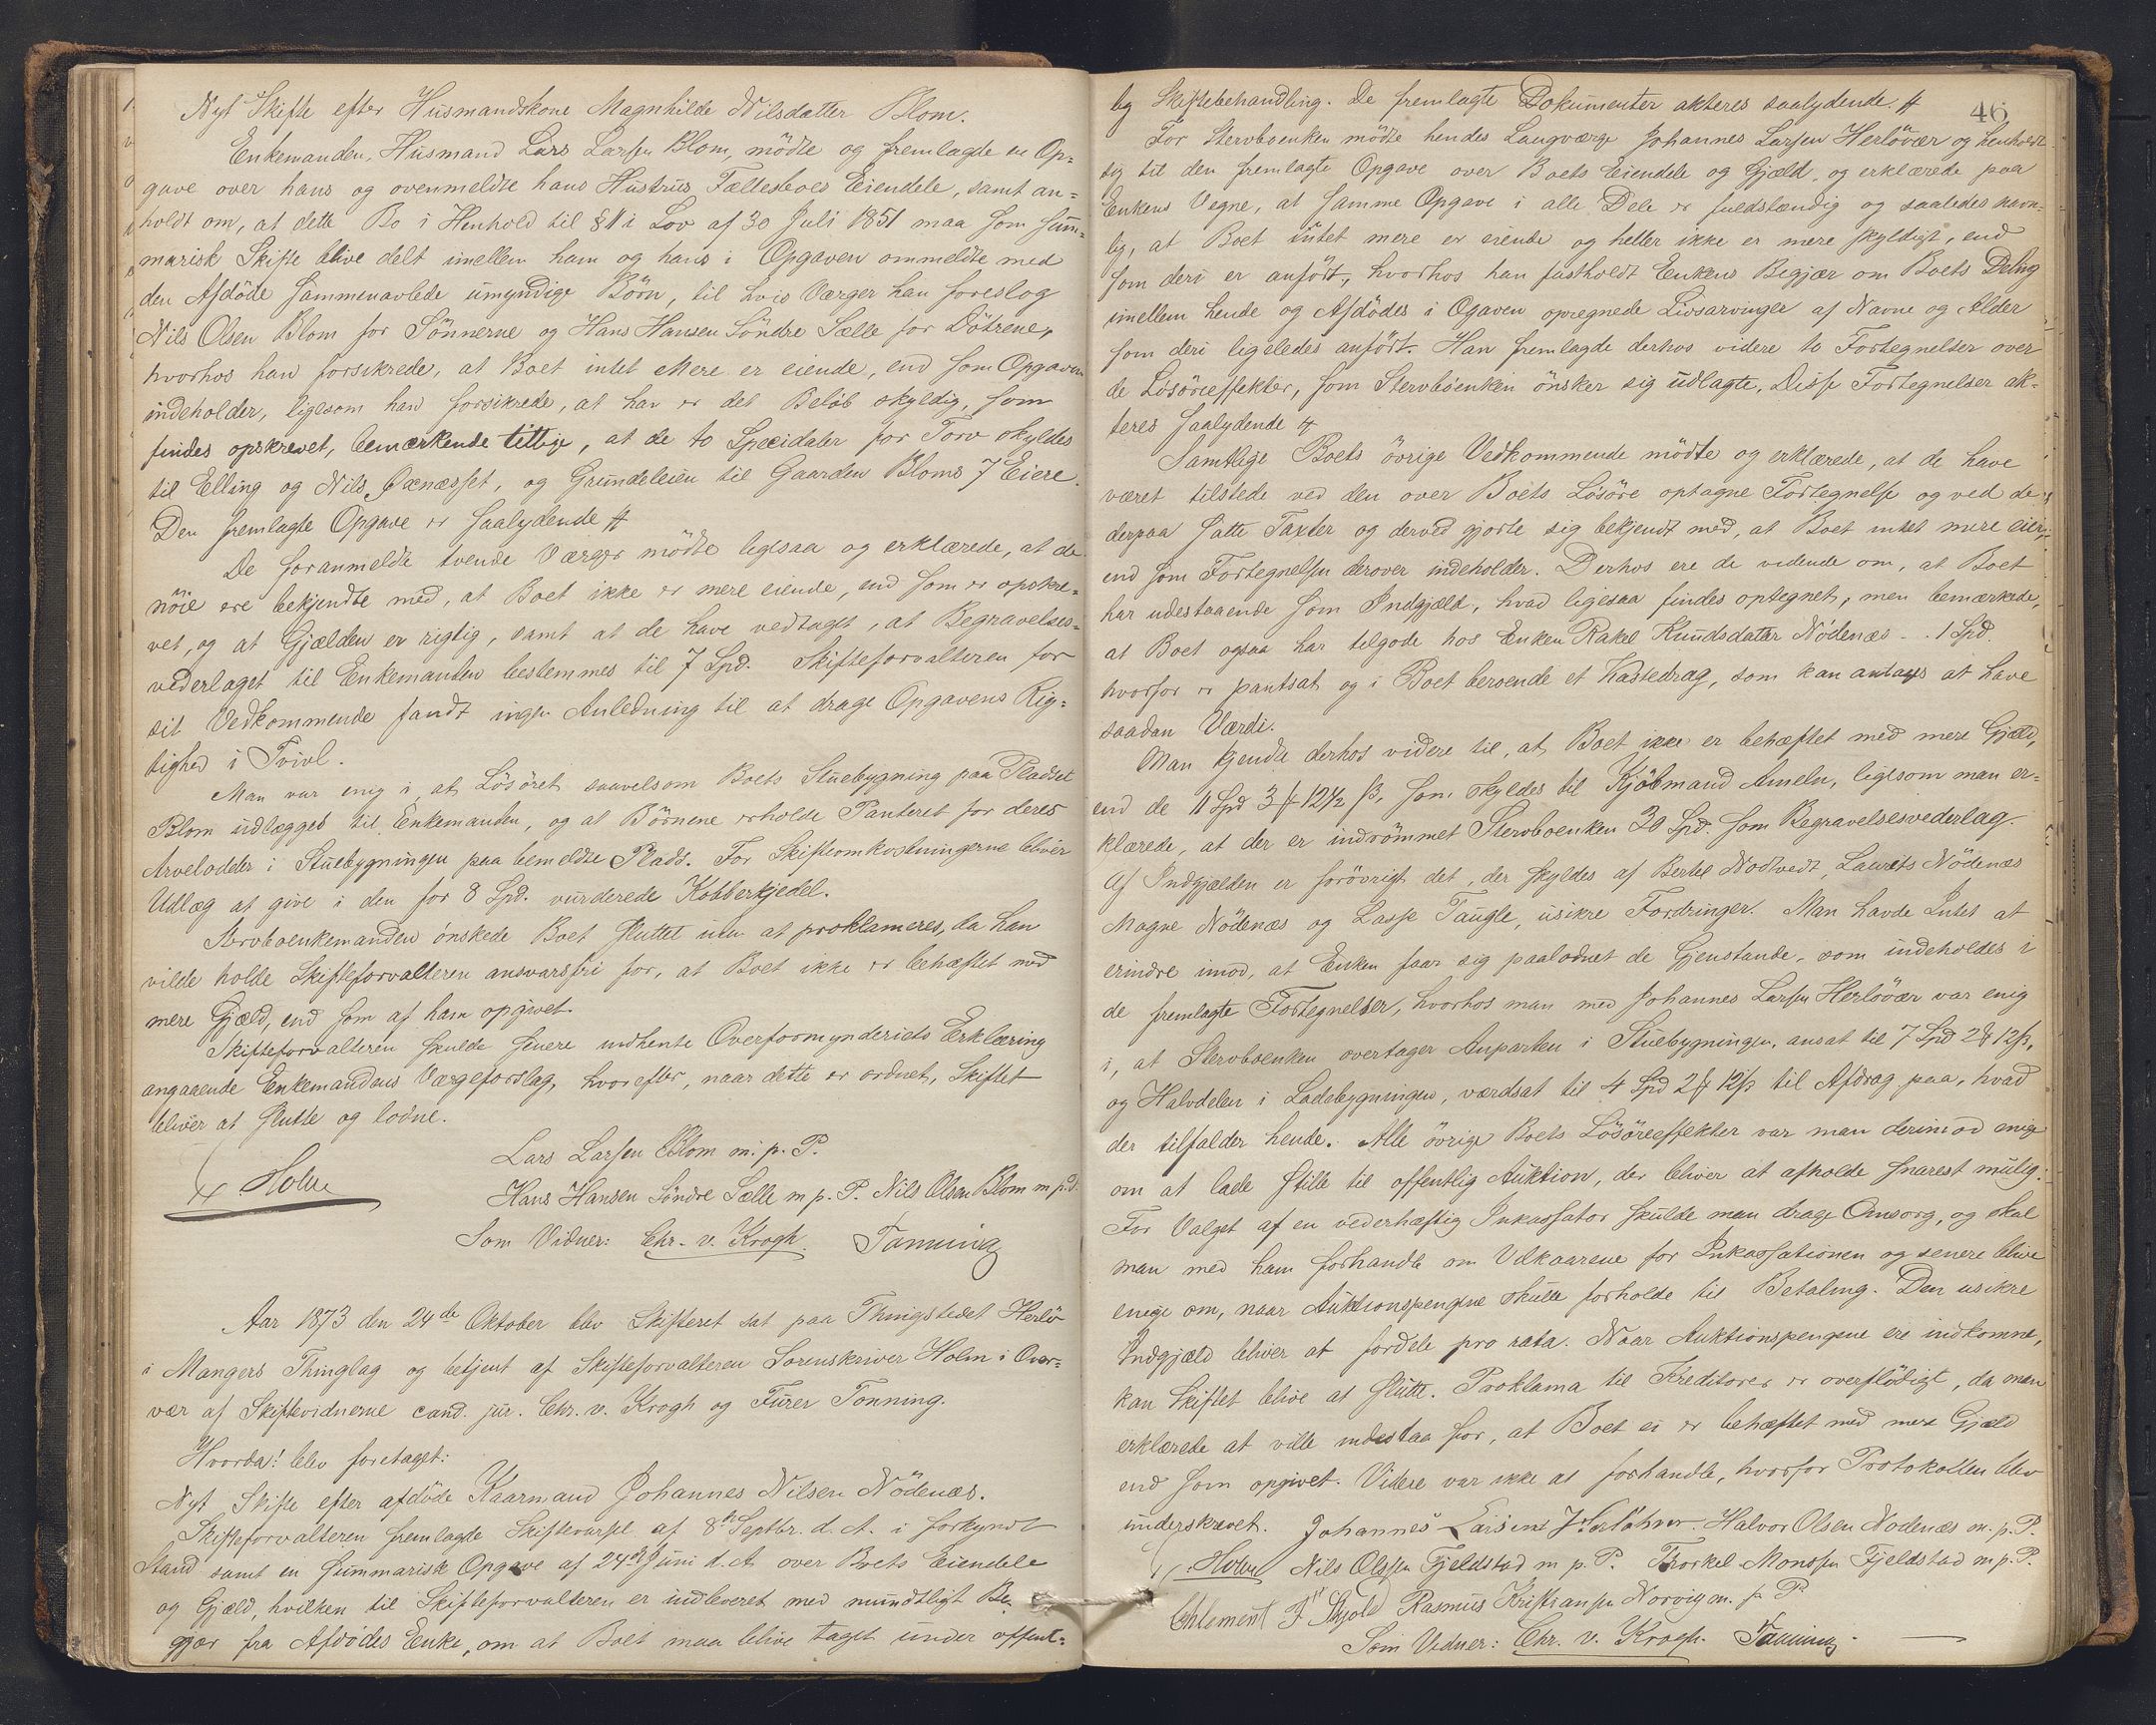 Nyt Skifte efter Husmandskone Magnhilde Nilsdatter Blom.
Enkemanden, Husmand Lars Larsen Blom, mödte og fremlagde en Op-
gave over hans og ovenmeldte hans Hustrus Fællesboes Eiendele, samt an-
holdt om, at dette Bo i Henhold til § 11 i Lov af 30 Juli 1851 maa som sum-
marisk Skifte blive delt imellem ham og hans i Opgaven ommeldte med
den Afdöde sammenavlede umyndige Börn, til hvis Værger han foreslog
Nils Olsen Blom for Sönnerne og Hans Hansen Söndre Sælle for Döttrene,
hvorhos han forsikrede, at Boet intet Mere er eiende, end som Opgaven
indeholder, ligesom han forsikrede, at han er det Belöb skyldig, som
findes opskrevet, bemærkende tillige, at de to Specidaler for Torv skyldes
til Elling og Nils Oxnæsset, og Grundeleien til Gaarden Bloms 7 Eiere.
Den fremlagte Opgave er saalydende #
De foranmeldte tvende Værger mödte ligesaa og erklærede, at de
nöie ere bekjendte med, at Boet ikke er mere eiende, end som er opskre-
vet, og at Gjælden er rigtig, samt at de have vedtaget, at Begravelses-
vederlaget til Enkemanden bestemmes til 7 Spd. Skifteforvalteren for
sit Vedkommende fandt ingen Anledning til at drage Opgavens Rig-
tighed i Tvivl.
Man var enig i, at Lösöret saavelsom Boets Stuebygning paa Pladset
Blom udlægges til Enkemanden, og at Börnene erholde Panteret for deres
Arvelodder i Stuebygningen paa bemeldte Plads. For Skifteomkostningerne bliver
Udlæg at give i den for 8 Spd. vurderede Kobberkjedel.
Stervboenkemanden önskede Boet sluttet uden at proklameres, da han
vilde holde Skifteforvalteren ansvarsfri for, at Boet ikke er behæftet med
mere Gjæld, end som af ham opgivet.
Skifteforvalteren skulde senere indhente Overformynderiets Erklæring
angaaende Enkemandens Værgeforslag, hvorefter, naar dette er ordnet, Skiftet
bliver at slutte og lodne.
Lars Larsen Blom m. p. P.
Holm
Hans Hansen Söndre Sælle m p. P. Nils Olsen Blom m p. P.
Som Vidner: Chr. v. Krogh. Tonning
Aar 1873 den 24de Oktober blev Skifteret sat paa Thingstedet Herlö
i Mangers Thinglag og betjent af Skifteforvalteren Sorenskriver Holm i Over-
vær af Skiftevidnerne cand. jur. Chr. v. Krogh og Furer Tonning.
Hvorda! blev foretaget:
Nyt Skifte efter afdöde Kaarmand Johannes Nilsen Nödenæs.
Skifteforvalteren fremlagde Skiftevarsel af 8de Septbr. d. A. i forkyndt
Stand samt en summarisk Opgave af 24de Juni d. A. over Boets Eiendele
og Gjæld, hvilken til Skifteforvalteren er indleveret med mundtligt Be-
gjær fra Afdödes Enke, om at Boet maa blive taget under offent-
46
lig Skiftebehandling. De fremlagte Dokumenter akteres saalydende. #
For Stervboenken mödte hendes Laugværge Johannes Larsen Herlövær og henholdt
sig til den fremlagte Opgave over Boets Eiendele og Gjæld, og erklærede paa
Enkens Vegne, at samme Opgave i alle Dele er fuldstændig og saaledes navn-
lig, at Boet intet mere er eiende og heller ikke er mere skyldigt, end
som deri er anfört, hvorhos han fastholdt Enkens Begjær om Boets Deling
imellem hende og Afdödes i Ogaven opregnede Livsarvinger af Navne og Alder
som deri ligeledes anfört. Han fremlagde derhos videre to Fortegnelser over
de Lösöreeffekter, som Stervboenken önsker sig udlagte. Disse Fortegnelser ak-
teres saalydende #
Samtlige Boets övrige Vedkommende mödte og erklærede, at de have
været tilstede ved den over Boets Lösöre optagne Fortegnelse og ved de
derpaa satte Taxter og derved gjorte sig bekjendt med, at Boet intet mere eier,
end som Fortegnelsen derover indeholder. Derhos ere de vidende om, at Boet
har udestaaende som Indgjæld, hvad ligesaa findes optegnet, men bemærkede,
at Boet ogsaa har tilgode hos Enken Rakel Knudsdatter Nödenæs .. 1 Spd.
hvorfor er pantsat og i Boet beroende et Kastedrag, som kan antages at have
saadan Værdi.
Man kjendte derhos videre til, at Boet ikke er behæftet med mere Gjæld,
end de 11 Spd 3 ƒ 12 1/2 ß, som skyldes til Kjöbmand Ameln, ligesom man er-
klærede, at der er indrömmet Stervboenken 30 Spd. som Begravelsesvederlag.
Af Indgjælden er forövrigt det, der skyldes af Bertel Nodtvedt, Laurits Nödenæs
Magne Nödenæs og Lasse Taugle, usikre Fordringer. Man havde Intet at
erindre imod, at Enken faar sig paalodnet de Gjenstande, som indeholdes i
de fremlagte Fortegnelser, hvorhos man med Johannes Larsen Herlövær var enig
i, at Stervboenken overtager Anparten i Stuebygningen, ansat til 7 Spd 2 ƒ 12 ß,
og Halvdelen i Ladebygningen, værdsat til 4 Spd 2 ƒ 12 ß til Afdrag paa, hvad
der tilfalder hende. Alle övrige Boets Lösöreeffekter var man derimod enige
om at lade stille til offentlig Auktion, der bliver at afholde snarest mulig.
For Valget af en vederhæftig Inkassator skulde man drage Omsorg, og skal
man med ham forhandle om Vilkaarene for Inkassationen og senere blive
enige om, naar Auktionspengene skulle forholde til Betaling. Den usikre
Indgjæld bliver at fordele pro rata. Naar Auktionspengene ere indkomne,
kan Skiftet blive at slutte. Proklama til Kreditorer er overflödigt, da man
erklærede at ville indestaa for, at Boet ei er behæftet med mere Gjæld
end som opgivet. Videre var ikke at forhandle, hvorfor Protokollen blev
underskrevet. Johannes Larsen Herlöhver. Halvor Olsen Nodenæs m. p. P.
Holm Nils Olssen Fjeldstad m p. P. Thorkel Monssen Fjeldstad m p. P.
Chlement F Skjold Rasmus Kristiansen Norvig m. p. P.
Som Vidner: Chr. v. Krogh. Tonning